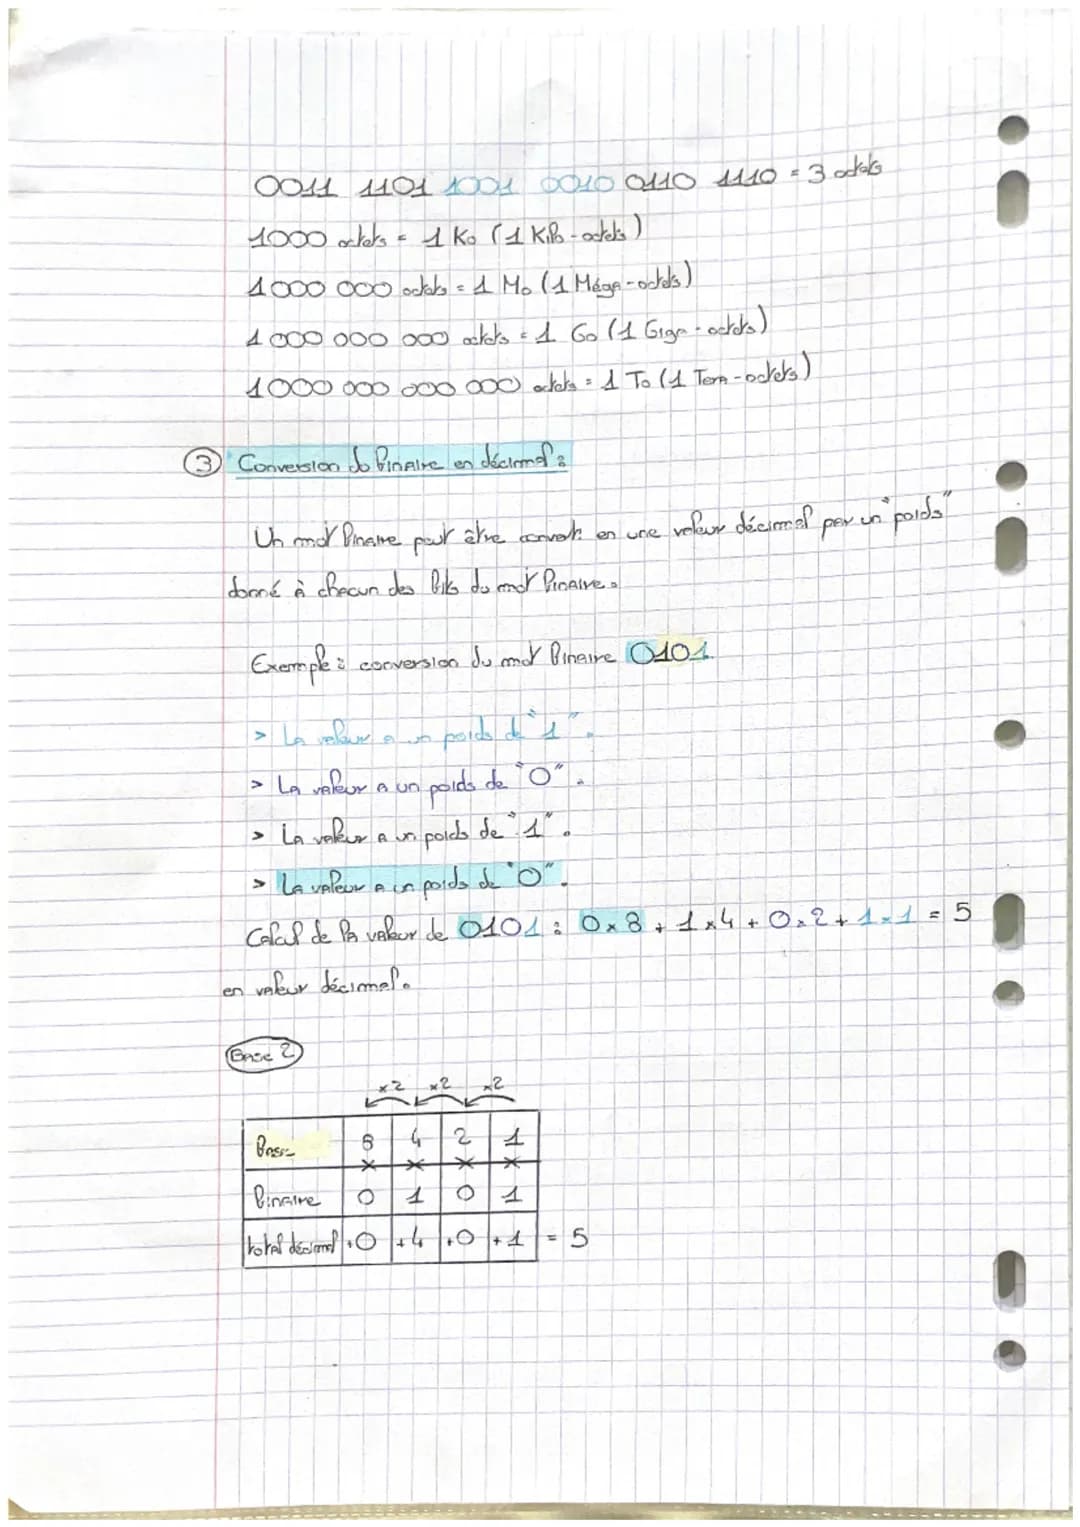 0011 1101 1001 0010 0110 1110 = 3 octets
1000 octets = 1 Ko (1 Kilo-octets)
1000 000 octets = 1 Mo (1 Méga-octets)
1000 000 000 octets = 1 Go (1 Giga-octets)
1000 000 000 000 octets = 1 To (1 Tera-octets)
3 Conversion do binaire en décimal :
Un mot binaire peut être convert en une valeur décimal par un "poids"
donné à chacun des bits du mot binaire.
Exemple : conversion du mot binaire 0101
> La valeur a un poids de "1".
> La valeur a un poids de "0".
> La valeur a un poids de "1".
> La valeur a un poids de "0".
Calcul de la valeur de 0101 : 0x8 + 1x4 + 0x2 + 1x1 = 5
en valeur décimal.
Base 2
x2 x2 x2
Base 8 4 2 1
x x x x
binaire 0 1 0 1
total décimal +0 +4 +0 +1 = 5